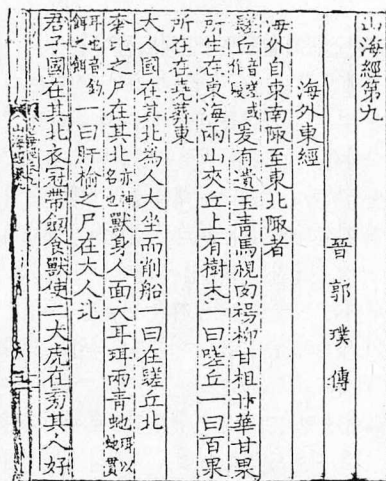 山海經第九
晉 郭 璞 傳
海外東經
海外自東南陬至東北陬者
𨲠丘音嗟或作髮爰有遺玉青馬視肉楊柳甘柤甘華甘果
所生在東海兩山夾丘上有樹木一曰嗟丘一曰百果
所在在堯葬東
大人國在其北爲人大坐而削船一曰在𨲠丘北
奢比之尸在其北亦神名也獸身人面大耳珥兩青蛇珥以蛇貫
耳也音釣餌之餌一曰肝榆之尸在大人北
君子國在其北衣冠帶劍食獸使二大虎在旁其人好